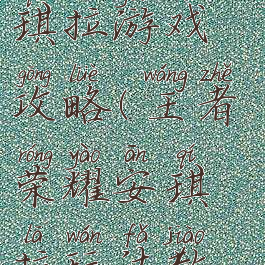 琪拉游戏
gōng lüè wáng zhě
攻略(王者
róng yào ān qí
荣耀安琪
lā wán fǎ jiào